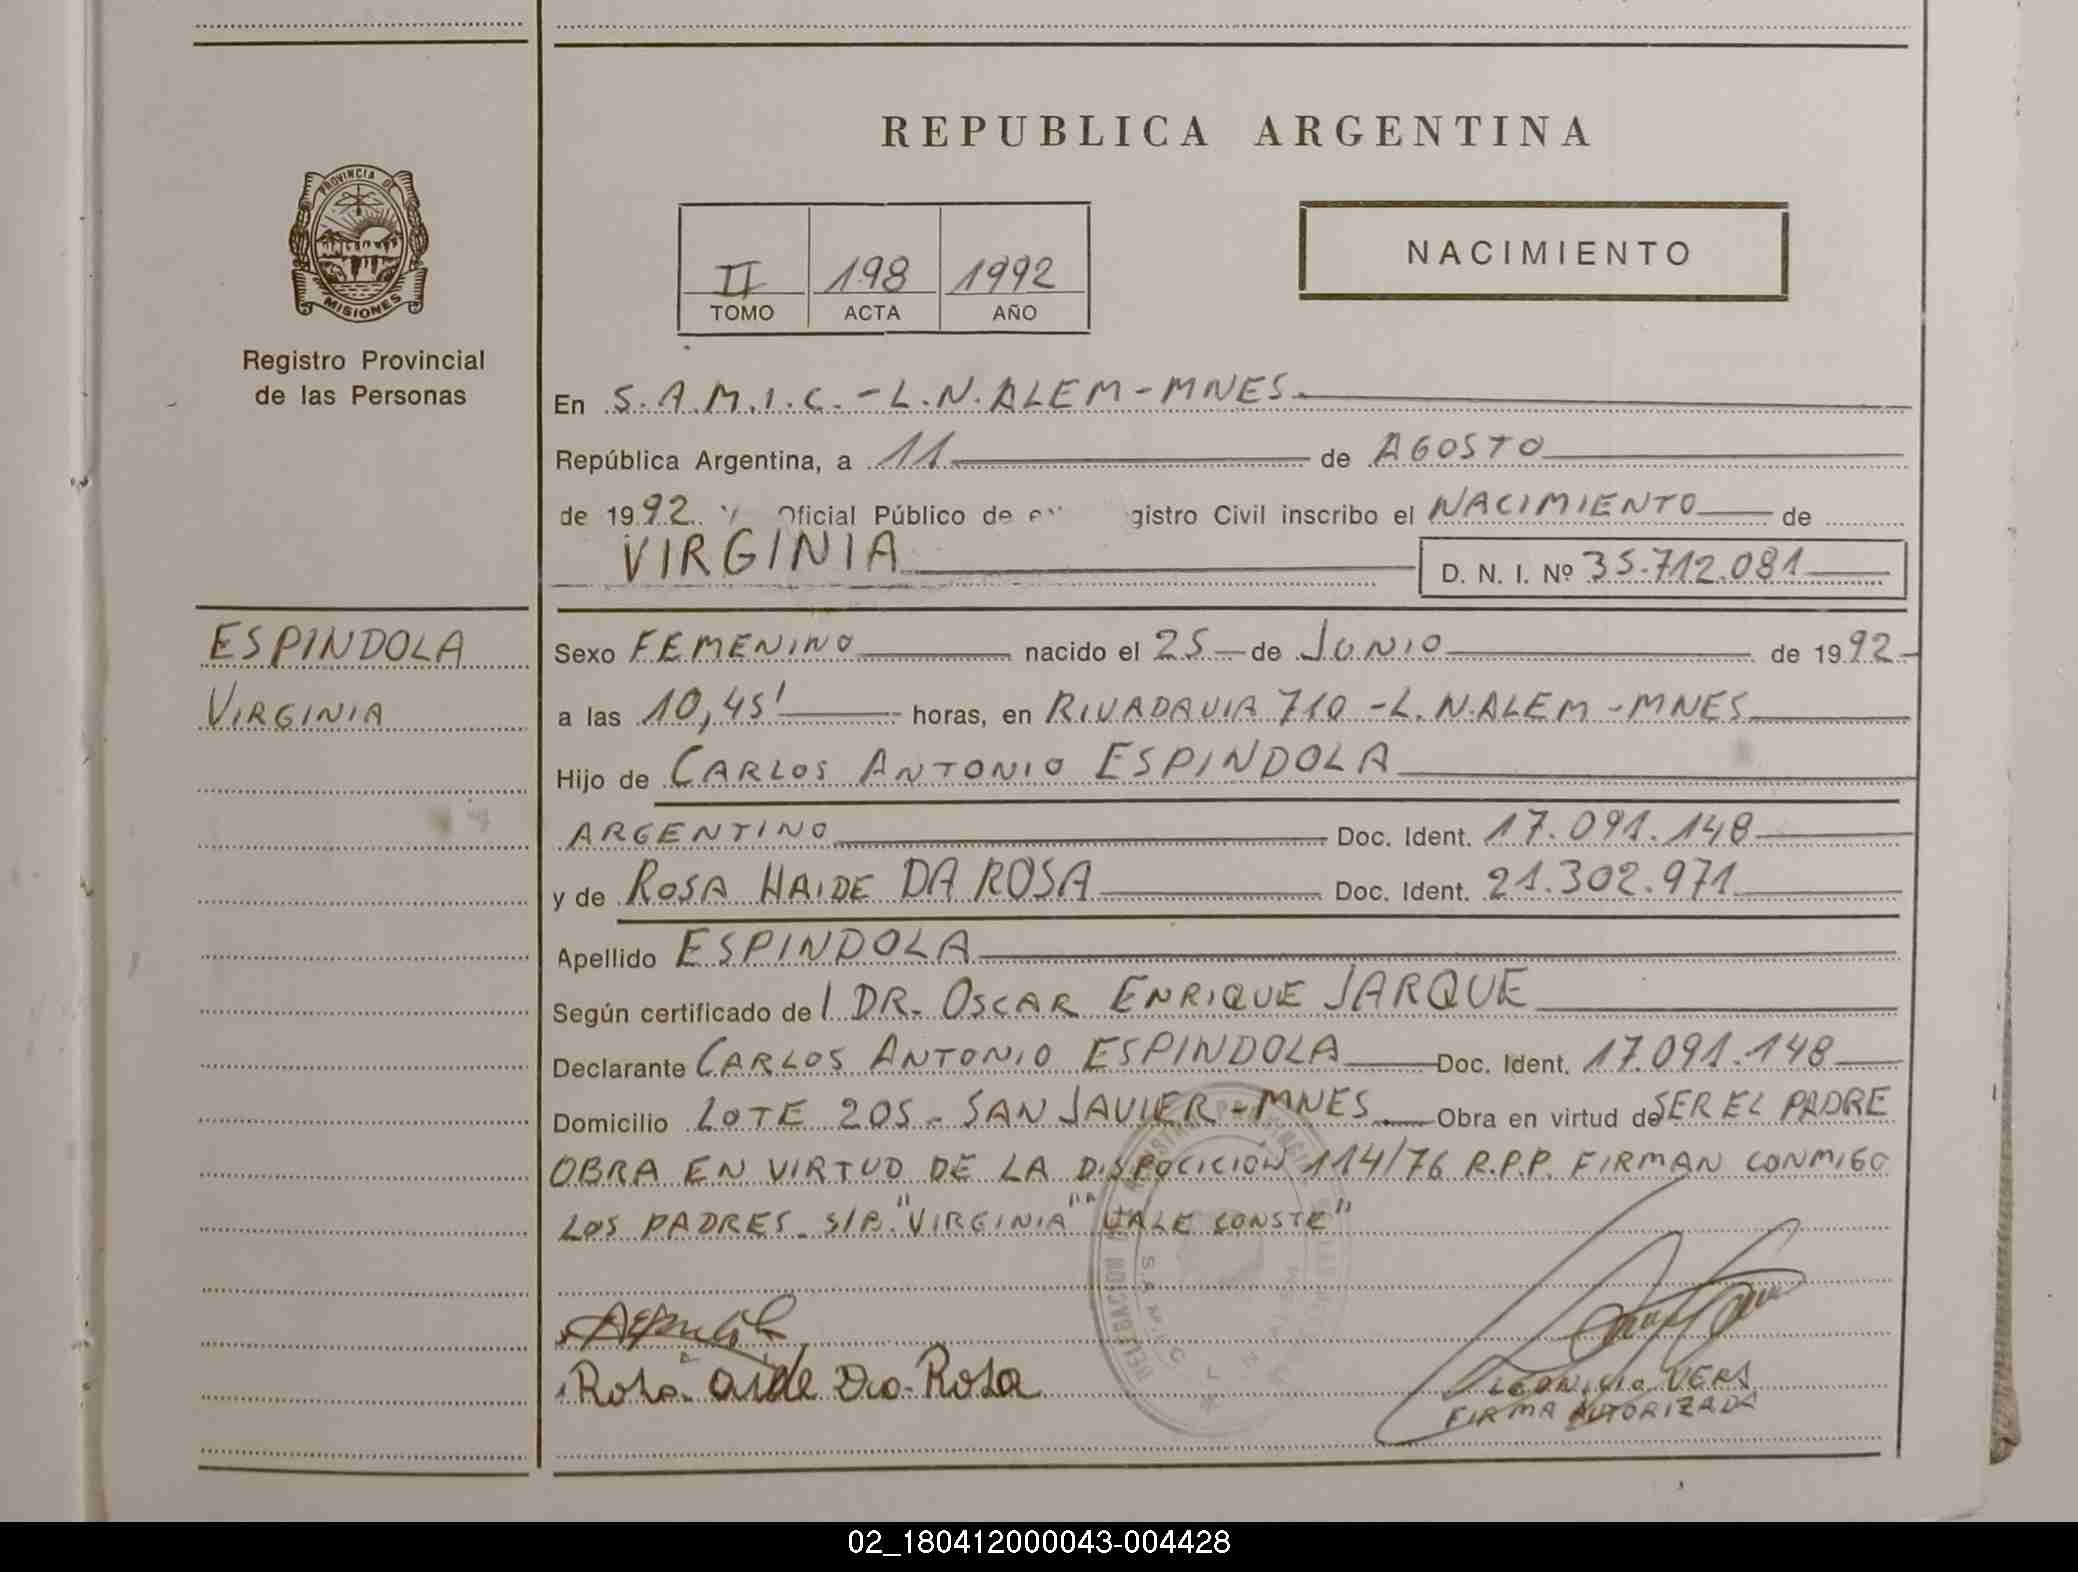 REPUBLICA ARGENTINA
PROVINCIA DE
MISIONES
Registro Provincial
de las Personas
II 198 1992
TOMO ACTA AÑO
NACIMIENTO
En S.A.M.I.C. - L.N. ALEM - MNES.
República Argentina, a 11 de AGOSTO
de 1992. Oficial Público de gistro Civil inscribo el NACIMIENTO de
VIRGINIA
D. N. I. Nº 35.712.081
ESPINDOLA
VIRGINIA
Sexo FEMENINO nacido el 25 de JUNIO de 1992
a las 10,45' horas, en RIVADAVIA 710 - L.N. ALEM - MNES
Hijo de CARLOS ANTONIO ESPINDOLA
ARGENTINO Doc. Ident. 17.091.148
y de ROSA HAIDE DA ROSA Doc. Ident. 21.302.971
Apellido ESPINDOLA
Según certificado de l DR. OSCAR ENRIQUE JARQUE
Declarante CARLOS ANTONIO ESPINDOLA Doc. Ident. 17.091.148
Domicilio LOTE 205 - SAN JAVIER - MNES Obra en virtud de SER EL PADRE
OBRA EN VIRTUD DE LA DISPOCICION 114/76 R.P.P. FIRMAN CONMIGO
LOS PADRES - S/R. "VIRGINIA" "VALE CONSTE"
DELEGACION
Rosa aide Da Rosa
VERS
FIRMA AUTORIZADA
02_180412000043-004428